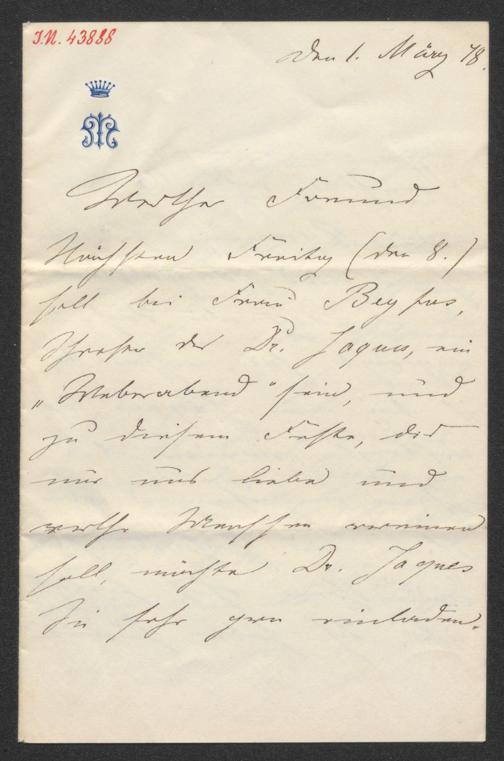 I.N. 43888
den 1. März 78.
Werther Freund
Nächsten Freitag (den 8.)
soll bei Frau Beyfus,
Schwester des Dr. Jaques, ein
„Weberabend" sein, und
zu diesem Feste, das
nur uns liebe und
werthe Menschen vereinen
soll, möchte Dr. Jaques
Sie sehr gern einladen.